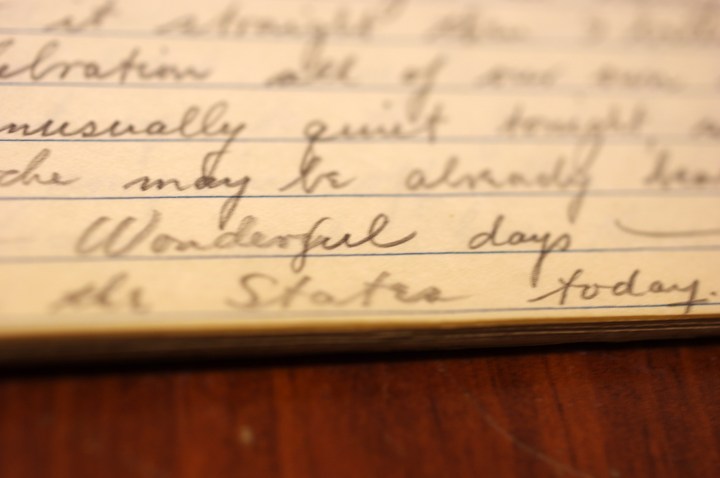 it straight
lebration all of our own
nusually quiet tonight
che may be already
Wonderful days —
the States today.